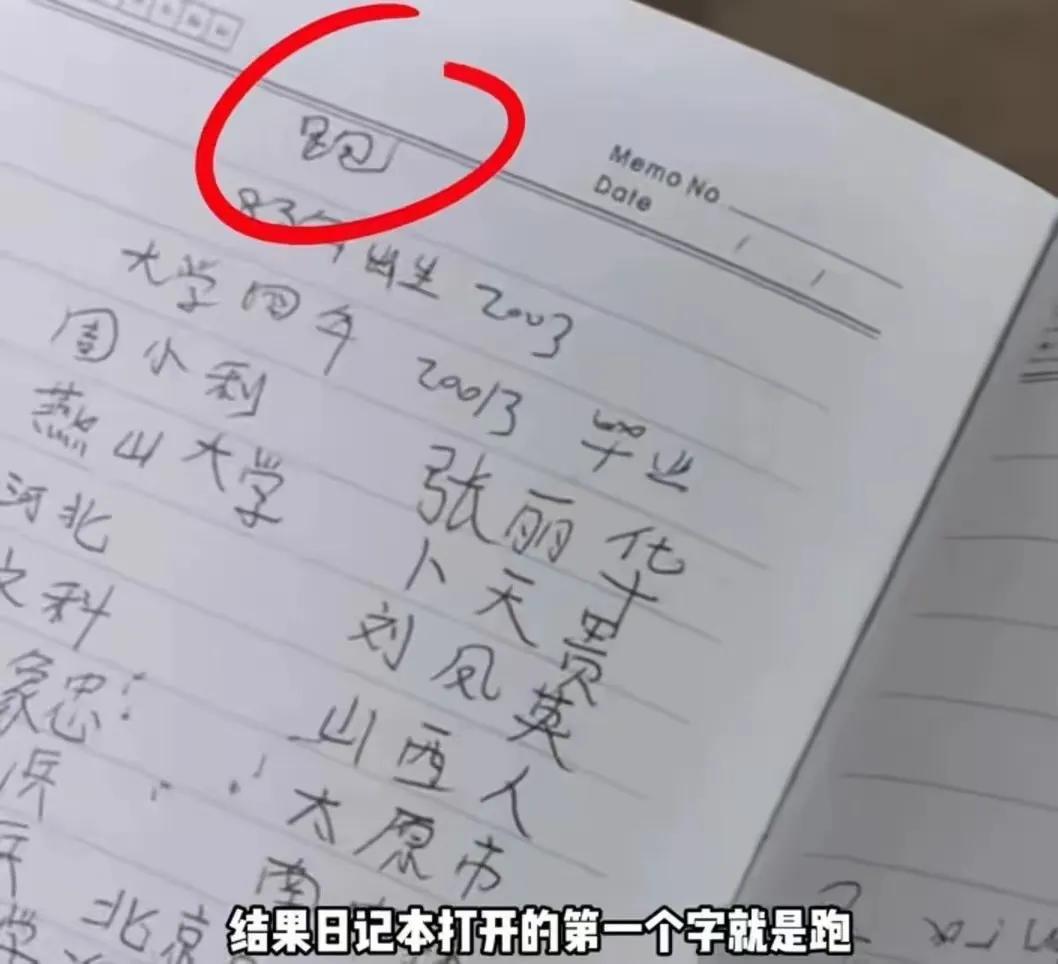 跑
Memo No
Date / /
83年出生 2003
大学四年 20013 毕业
周小利
燕山大学 张丽华
河北 卜天贵
文科 刘凤英
家忠: 山西人
兵 太原市
北京 南
结果日记本打开的第一个字就是跑